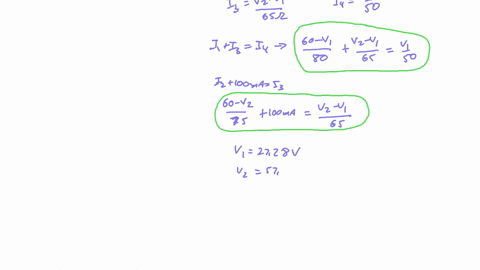 I₃ = V₂-V₁/65Ω I₄ = /50
I₁+I₃ = I₄ → 60-V₁/80 + V₂-V₁/65 = V₁/50
I₂+100mA=I₃
60-V₂/75 + 100mA = V₂-V₁/65
V₁ = 27.28V
V₂ = 57.